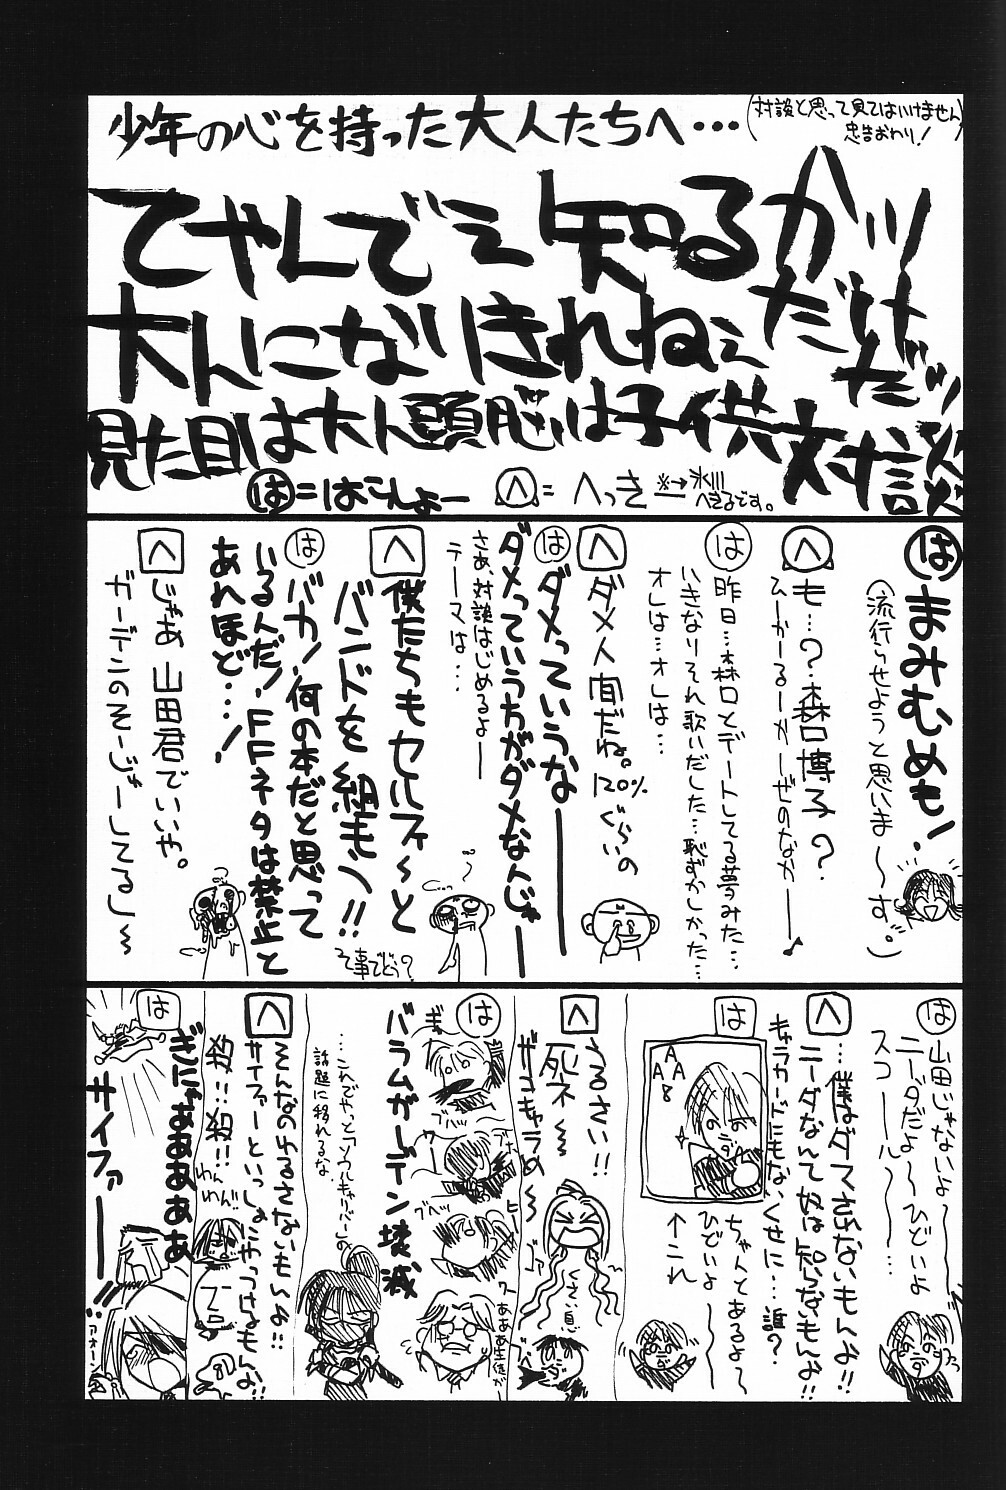 少年の心を持った大人たちへ・・・
(対談と思って見てはいけません
忠告おわり!)
てやんでぇ知るかッ
大人になりきれねぇ
だけだッ
見た目は大人頭脳は子供対談
は=はこんょー
へ=へっき
※→氷川
へきるです。
は まみむめも!
(流行らせようと思いま〜す。)
へ も…?森口博子?
ひーかーるーかーぜのなかー♪
は 昨日…森口とデートしてる夢みた…
いきなりそれ歌いだした…恥ずかしかった…
オレは…オレは…
へ ダメ人間だね。120%ぐらいの
は ダメっていうなー
ダメっていう方がダメなんじゃー
さあ、対談はじめるよー
テーマは…
へ 僕たちもセルフィ〜と
バンドを組も〜!!
て事でどう?
は バカ!何の本だと思って
いるんだ!FFネタは禁止と
あれほど…!
へ じゃあ山田君でいいや。
ガーデンのそーじゃーしてるし〜
は 山田じゃないよ〜
ニーダだよ〜ひどいよ
スコール〜…
へ …僕はダマされないもんよ!!
ニーダなんて奴は知らないもんよ!!
キャラカードにもないくせに…誰?
は
A
A A
8
ちゃんとあるよ〜
ひどいよ〜
↑これ
へ うるさい!!
死ネ〜
ザコキャラめ〜
くさい息
は バラムガーデン壊滅
ブヘッ
わああぁ生徒が
…これでやっとソウルキャリバーの
話題に移れるな
へ そんなのゆるさないもんよ!!
サイファーといっしょにやっつけるもんよ!!
殺…殺!!
わんわん
は ぎにゃあああああ
サイファーーー!!
アオーン